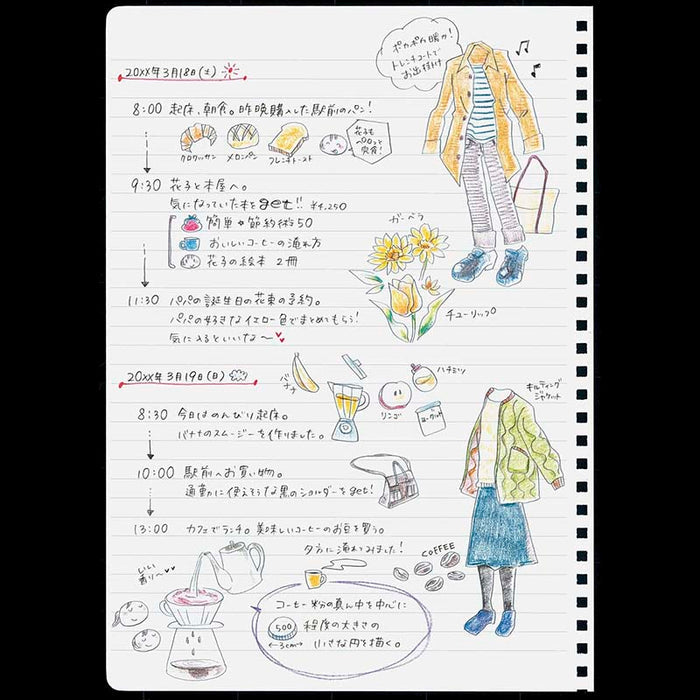 ポカポカ暖か!
トレンチコートで
お出掛け
20xx年3月18日(土)
8:00 起床、朝食。昨晩購入した駅前のパン!
クロワッサン
メロンパン
フレンチトースト
花子も
ペロッと
完食!
9:30 花子と本屋へ。
気になっていた本をget!! ¥4,250
簡単★節約術50
おいしいコーヒーの淹れ方
花子の絵本 2冊
ガーベラ
チューリップ
11:30 パパの誕生日の花束の予約。
パパの好きなイエロー色でまとめてもらう!
気に入るといいな〜
20xx年3月19日(日)
バナナ
ハチミツ
リンゴ
ヨーグルト
キルティング
ジャケット
8:30 今日はのんびり起床。
バナナのスムージーを作りました。
10:00 駅前へお買い物。
通勤に使えそうな黒のショルダーをget!
13:00 カフェでランチ。美味しいコーヒーのお豆を買う。
夕方に淹れてみました!
COFFEE
いい
香り〜
コーヒー粉の真ん中を中心に
500 程度の大きさの
←3cm→ 小さな円を描く。